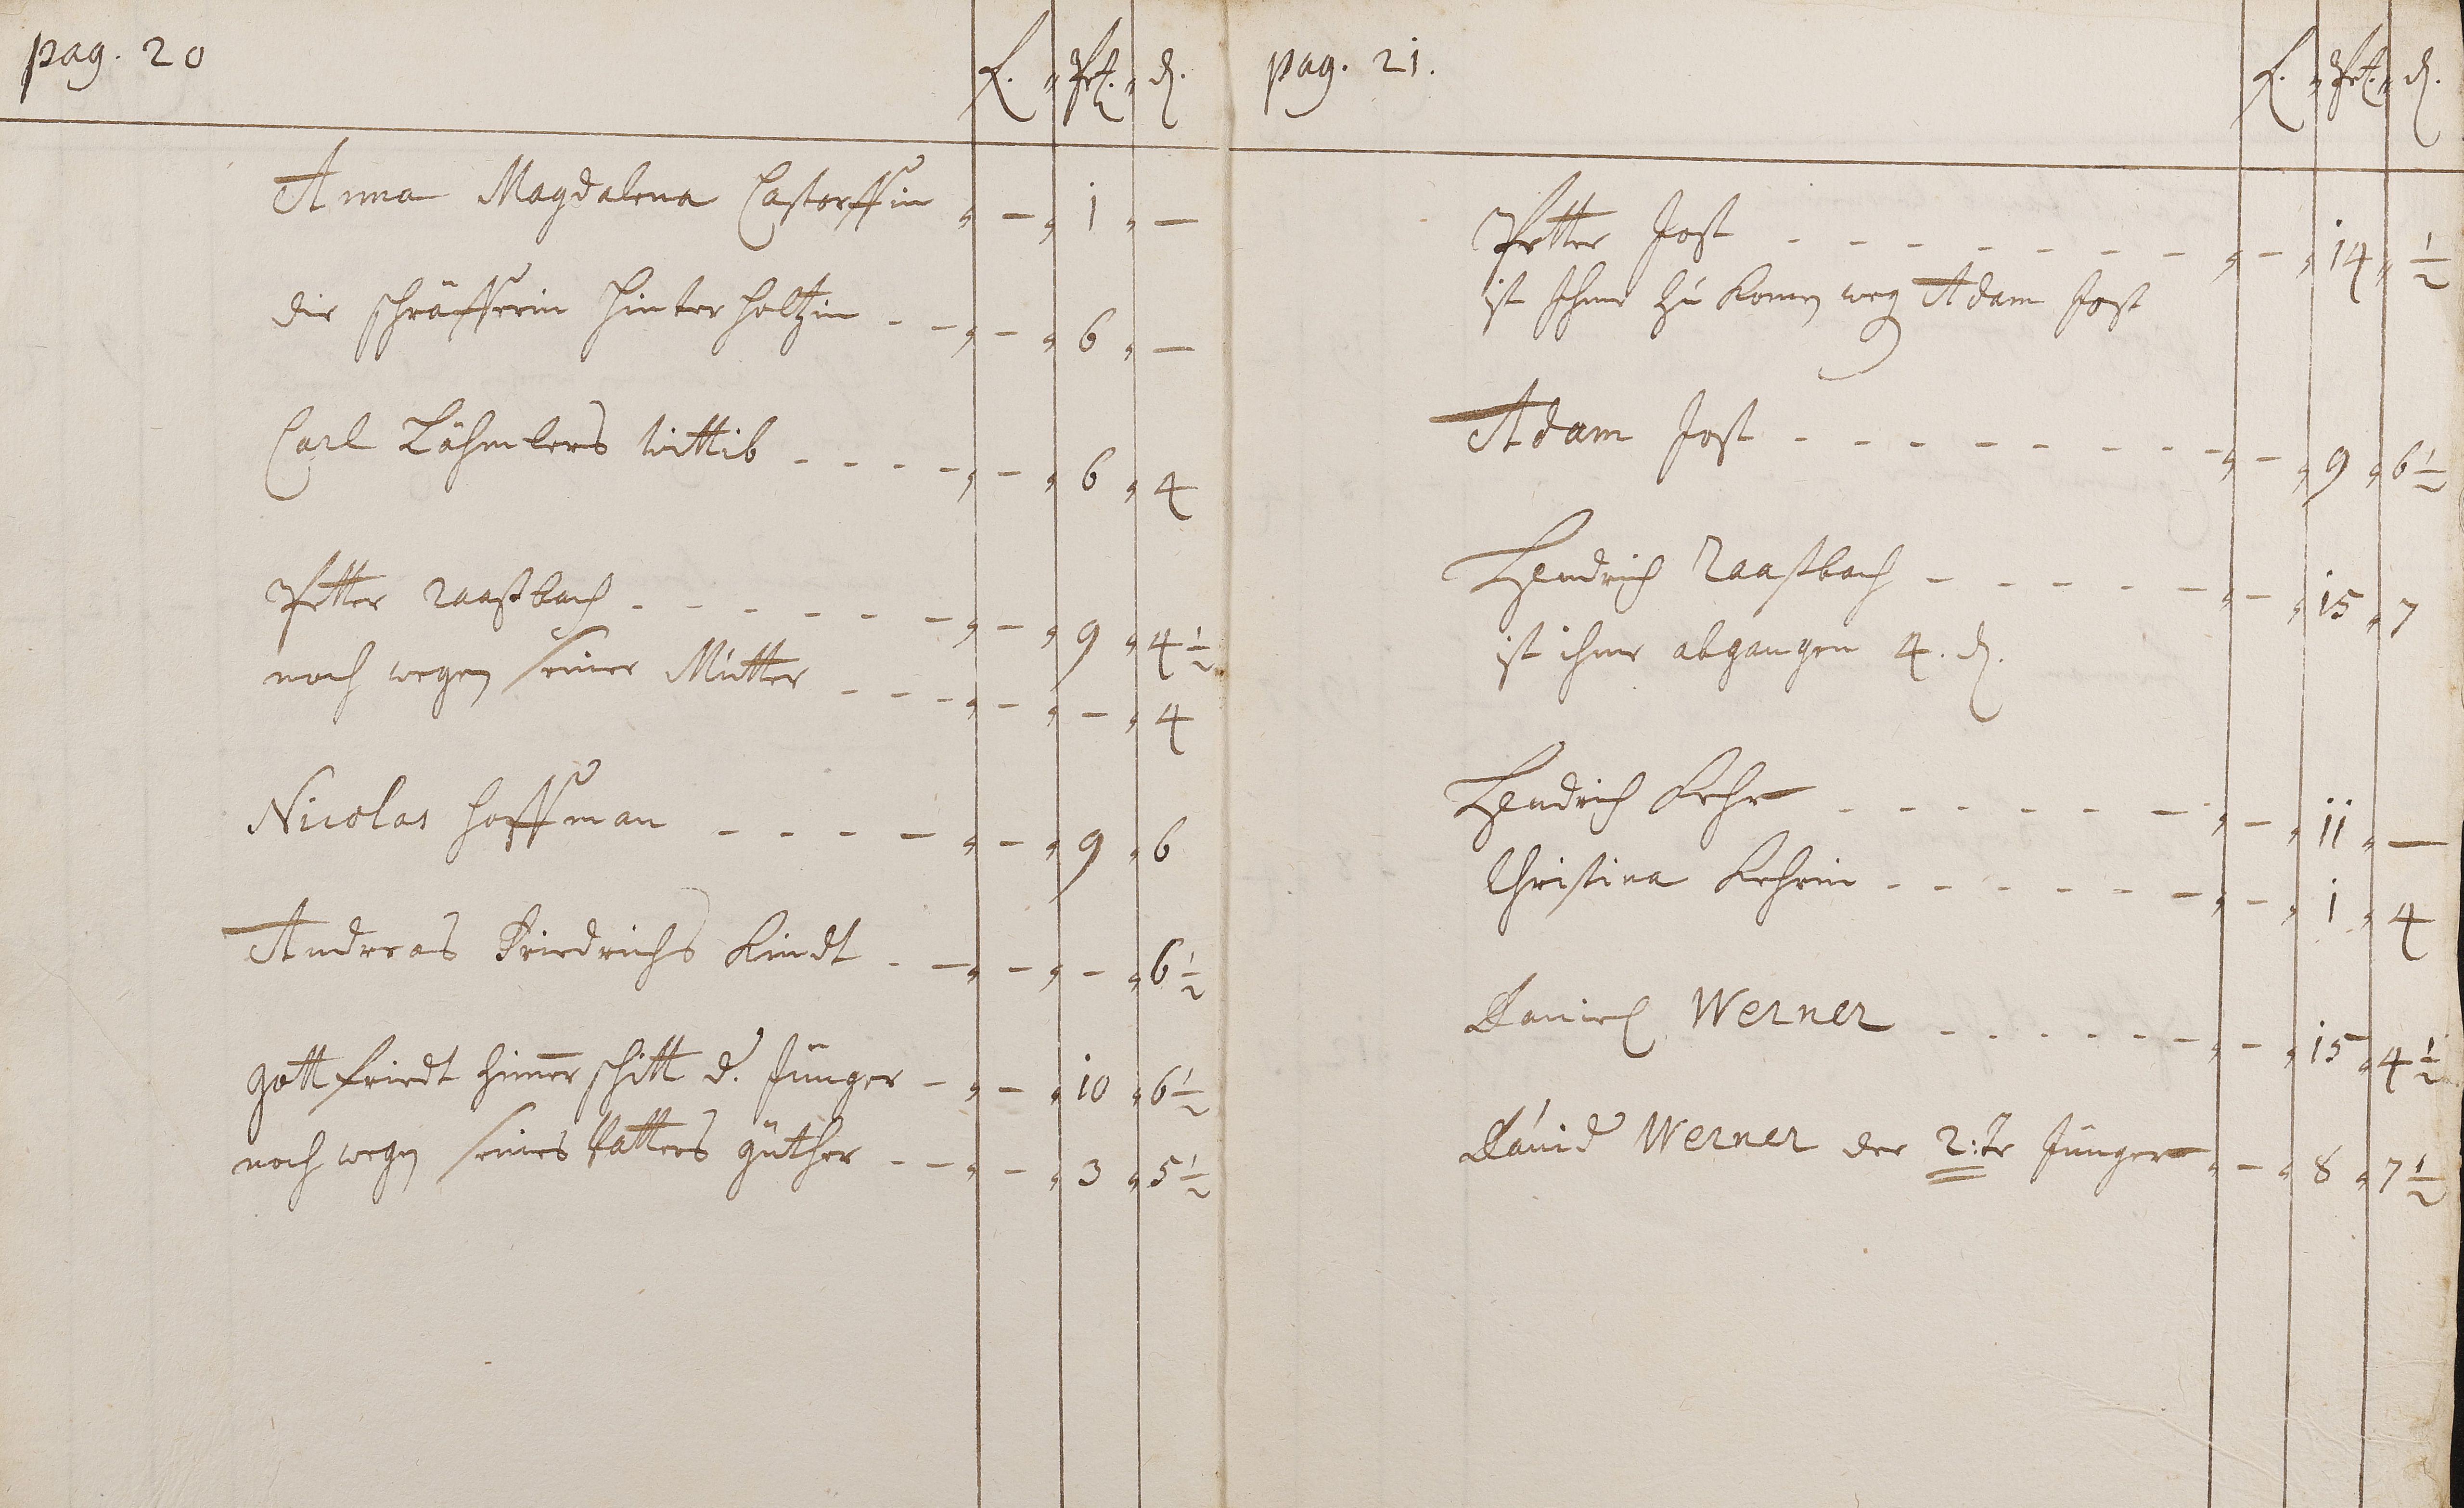 pag. 20
f. Pet. d.
Anna Magdalena Castorffin - 1 -
die schäfferin Hinterholtzin - - - 6 -
Carl Lähmlers wittib - - - - - 6 4
Petter Raaßbach - - - - - - - 9 4½
noch wegen seiner Mutter - - - - - 4
Nicolas Hoffman - - - - - 9 6
Andreas Friedrichs Kindt - - - - 6½
Gottfriedt himerschitt d. Jünger - - 10 6½
noch wegen seines Vatters güther - - - 3 5½
pag. 21.
f. Pet. d.
Petter Jost - - - - - - - - 14 ½
ist Ihme zu komen weg Adam Jost
Adam Jost - - - - - - - - - 9 6½
Hendrich Raaßbach - - - - - - 15 7
ist ihme abgangen 4. d.
Hendrich Kehr - - - - - - - 11 -
Christina Kehrin - - - - - - - 1 4
Daniel Werner - - - - - - 15 4½
David Werner der 2:te Jünger - 8 7½